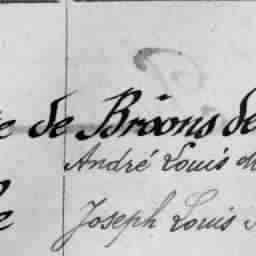 de Broons de
André Louis
le
Joseph Louis